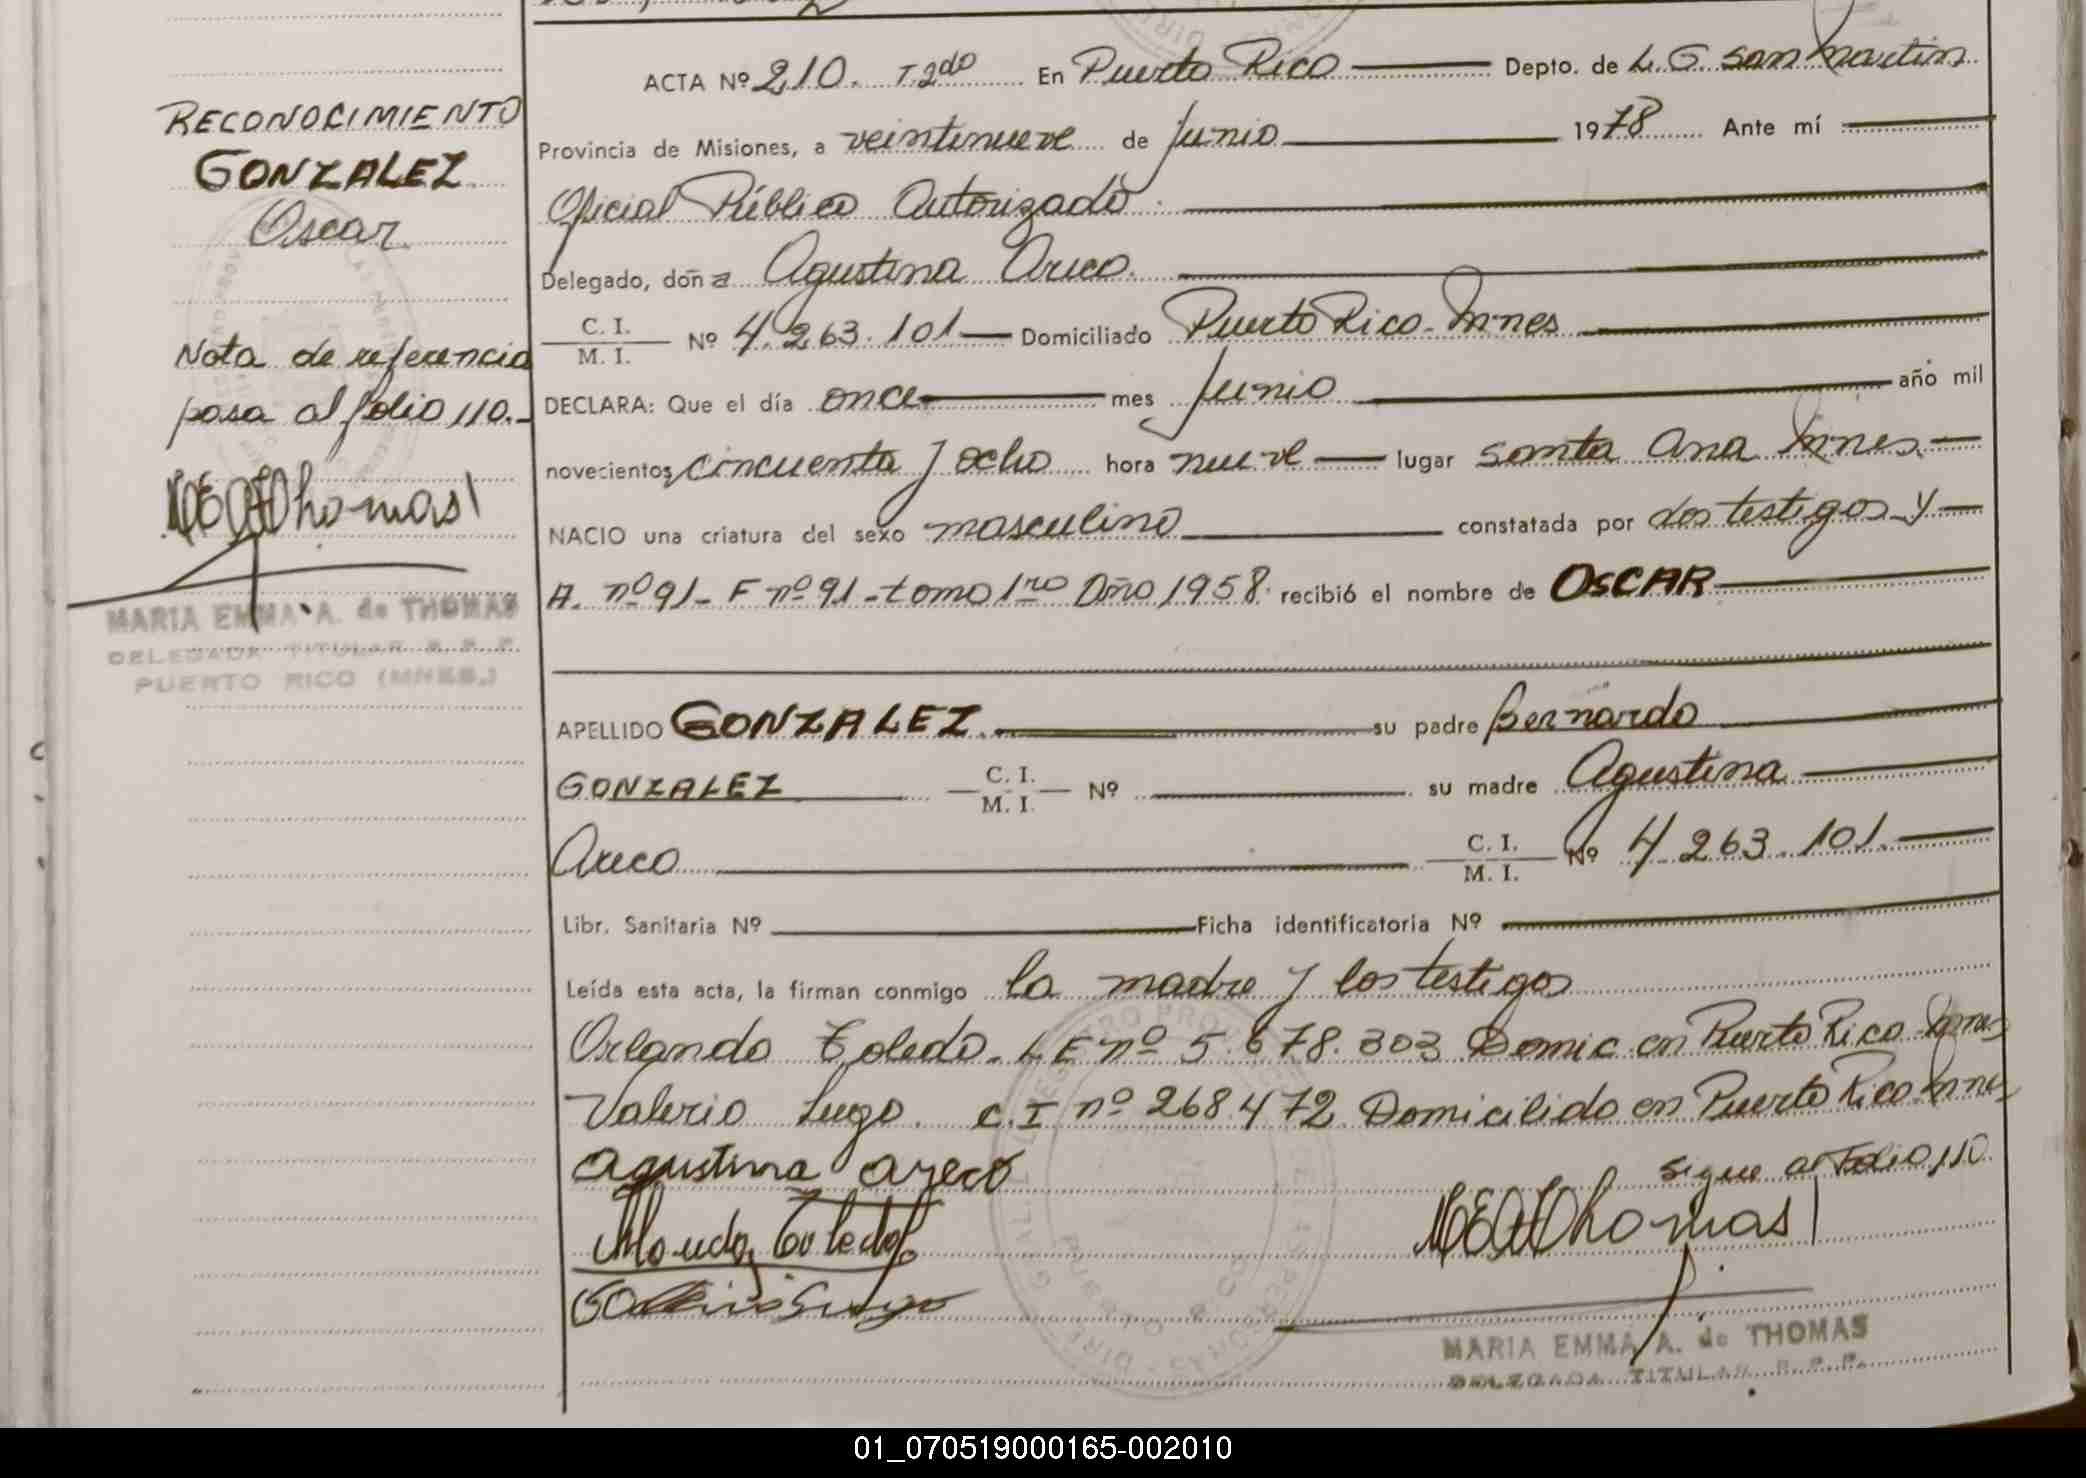 ACTA Nº 210. T. 2do En Puerto Rico Depto. de L. G. San Martin
Provincia de Misiones, a veintinueve de Junio 1978 Ante mí
Oficial Público Autorizado
Delegado, doña Agustina Areco.
C. I.
M. I. Nº 4.263.101 Domiciliado Puerto Rico Mnes
DECLARA: Que el día once mes Junio año mil
novecientos cincuenta y ocho hora nueve lugar Santa Ana Mnes.
NACIO una criatura del sexo masculino constatada por dos testigos y
A. nº 91 - F nº 91 - tomo 1ro Año 1958 recibió el nombre de OSCAR
APELLIDO GONZALEZ su padre Bernardo
GONZALEZ C. I. M. I. Nº su madre Agustina
Areco C. I. M. I. Nº 4.263.101.
Libr. Sanitaria Nº Ficha identificatoria Nº
Leída esta acta, la firman conmigo la madre y los testigos
Orlando Toledo. L E nº 5.678.303 Domic. en Puerto Rico Mnes
Valerio Lugo. C.I nº 268.472 Domicilido en Puerto Rico Mnes
Agustina areco sigue al Folio 110
Toledo MEAThomas
MARIA EMMA A. de THOMAS
DELEGADA TITULAR R. P. P.
RECONOCIMIENTO
GONZALEZ
Oscar
Nota de referencia
pasa al folio 110.-
MEAThomas
MARIA EMMA A. de THOMAS
DELEGADA TITULAR R. P. P.
PUERTO RICO (MNES.)
01_070519000165-002010